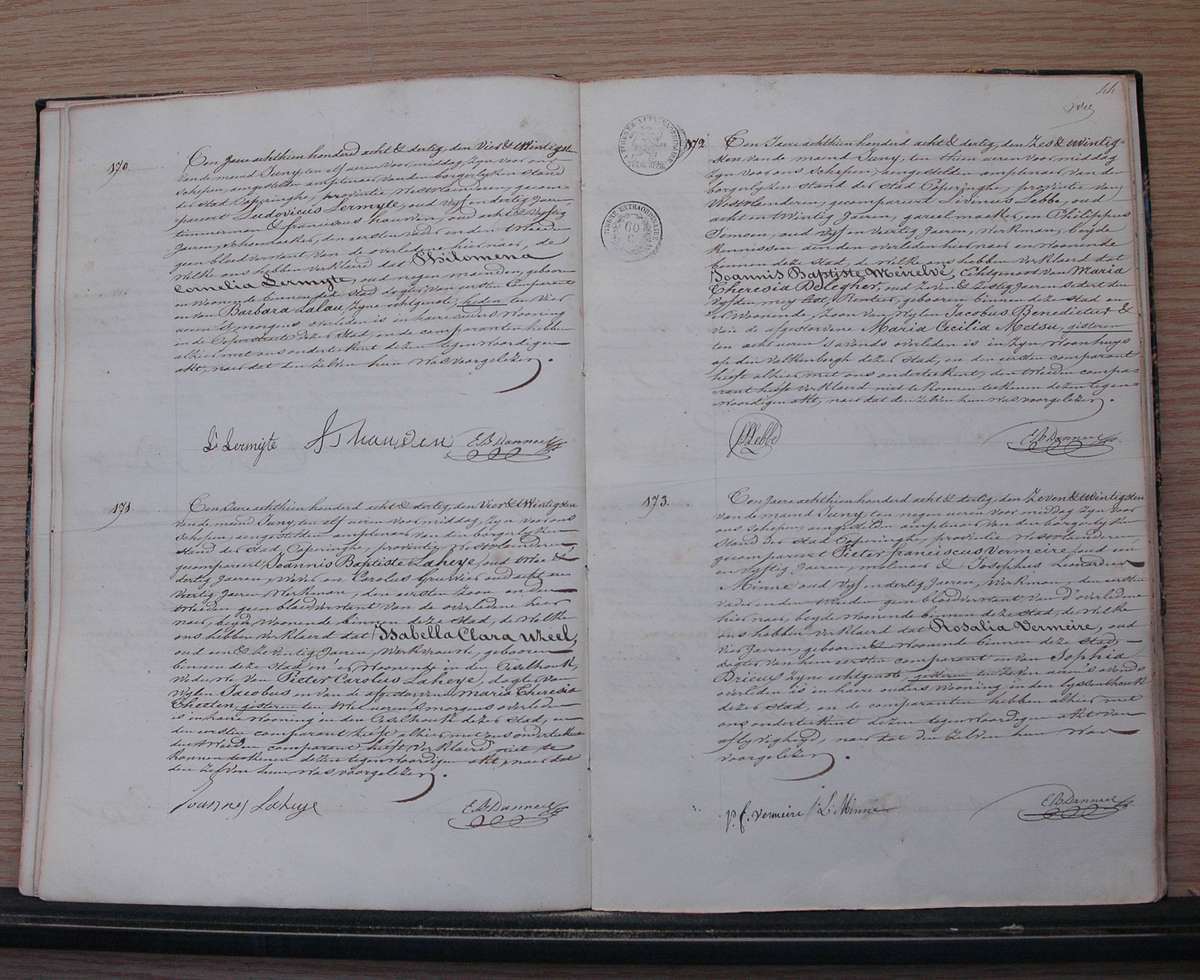 170.
Een Jaere achthien honderd acht & dertig, den Vier & twintigst
van de maand Juny, ten elf ueren voor middag, zyn voor ons
schepen, aangestelden amptenaer van den borgerlyken stand
der Stad Poperinghe, provintie Westvlaenderen, gecom-
pareert Ludovicus Lermyte, oud Vyf en dertig Jaeren,
timmerman & franciscus hauden, oud acht & Vyftig
Jaeren, schoenmaeker, den eersten vader en den tweeden
geen bloedverwant van de overledene hier naer, de
welke ons hebben verklaerd dat Philomena
Cornelia Lermyte, oud negen maenden, geboren
en Woonende binnen deze Stad, dogter van eersten Comparant
en van Barbara Lalau, zyne echtgenote, heden ten vier
ueren 's morgens overleden is in haere ouders Wooning
in de Peperstraete dezer Stad, en de comparanten hebben
alhier met ons onderteekent dezen tegenwoordigen
akt, naer dat den zelven hun was voorgelezen.
Ls Lermyte F s hauden E B Dannoe
171.
Een Jaere achthien honderd acht & dertig, den Vier & twintigsten
van de maand Juny, ten elf ueren voor middag, zyn voor ons
schepen, aangestelden amptenaer van den borgerlyken
stand der Stad Poperinghe, provintie Westvlaenderen,
gecompareert Joannis Baptiste Laheye, oud &
dertig Jaeren, Wever en Carolus Gruwier oud acht en
Veertig Jaeren Werkman, den eersten zoon en den
tweeden geen bloedverwant van de overledene hier
naer, beyde Woonende binnen deze Stad, de welke
ons hebben verklaerd dat Isabella Clara
oud een & zeventig Jaeren, Werkvrouw, geboren
binnen deze Stad en er Woonende in den Caselhoek,
Weduwe van Pieter Carolus Laheye, dogter van
Wylen Jacobus en van de afgestorvene Marie Theresia
gisteren ten ueren 's morgens overleden
is in haere Wooning in den Caselhoek dezer Stad, en
den eersten comparant heeft alhier met ons onderteekent
den tweeden comparant heeft verklaerd niet te
konnen teekenen dezen tegenwoordigen akt, naer dat
den zelven hun was voorgelezen.
Joannes Laheye E B Dannoe
44
172
Een Jaere achthien honderd acht & dertig, den Zes & twintig-
sten van de maand Juny, ten thien ueren voor middag
zyn voor ons schepen, aangestelden amptenaer van de
borgerlyken stand der Stad Poperinghe, provintie van
Westvlaenderen, gecompareert Livinus Lebbe, oud
acht en twintig Jaeren, gareelmaeker, en Philippus
Jansen, oud vyf en veertig Jaeren, Werkman, beyde
kennissen van den overleden hier naer en Woonende
binnen deze Stad, de welke ons hebben Verklaerd dat
Joannis Baptiste Meneboo, Echtgenoot van Maria
Theresia Delegher, oud Zeven & Zestig Jaeren,
Rentier, geboren binnen deze Stad en
er Woonende, Zoon van Wylen Jacobus Benedictus &
van de afgestorvene Maria Cecilia gisteren
ten acht ueren 's avonds overleden is in zyn Woonhuys
op den dezer Stad, en den eersten comparant
heeft alhier met ons onderteekent, den tweeden compa-
rant heeft verklaerd niet te konnen teekenen dezen tegen-
woordigen akt, naer dat den zelven hun was voorgelezen.
L Lebbe E B Dannoe
173.
Een Jaere achthien honderd acht & dertig, den Zeven & twintigsten
van de maand Juny, ten negen ueren voor middag, zyn voor
ons schepen, aangestelden amptenaer van den borgerlyken
stand der Stad Poperinghe, provintie Westvlaenderen,
gecompareert Pieter franciscus Vermeire, oud een
en vyftig Jaeren, molenaer & Josephus Leonardus
Minne oud Vyf en dertig Jaeren, Werkman, den eersten
vader en den tweeden geen bloedverwant van d'overledene
hier naer, beyde Woonende binnen deze Stad, de welke
ons hebben verklaerd dat Rosalia Vermeire, oud
vier Jaeren, geboren & Woonende binnen deze Stad,
dogter van hun eersten comparant en van Sophia
Bricus zyne echtgenote, gisteren ten Zeven ueren 's avonds
overleden is in haere ouders Wooning in den
dezer Stad, en de comparanten hebben alhier met
ons onderteekent dezen tegenwoordigen akt van
aflyvigheyd, naer dat den Zelven hun was
voorgelezen.
p. f. Vermeire J. L. Minne E B Dannoe